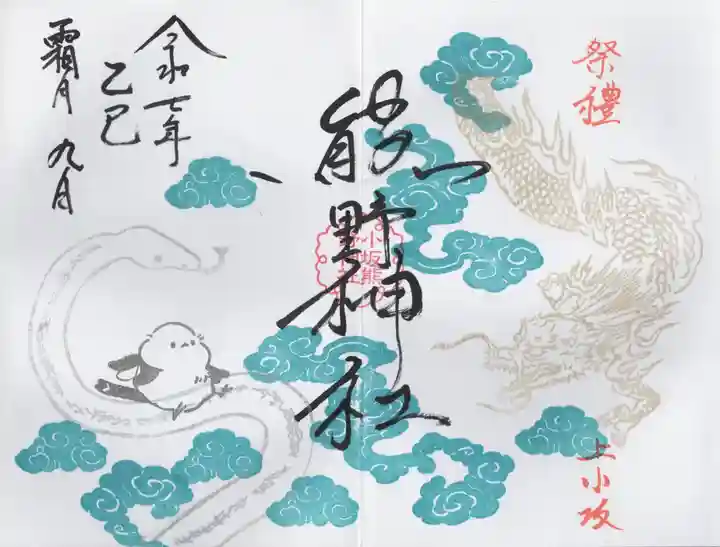 祭禮
上小坂
熊野神社
小坂熊
令和七年
乙巳
霜月 九月